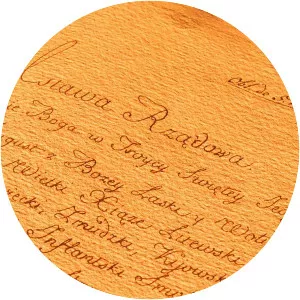 Ustawa Rządowa
Boga w Troycy Swiętey
z Bożey Łaski y Woli
Wielki Xiąże Litewski
Zmudzki, Kyowski
Inflantski